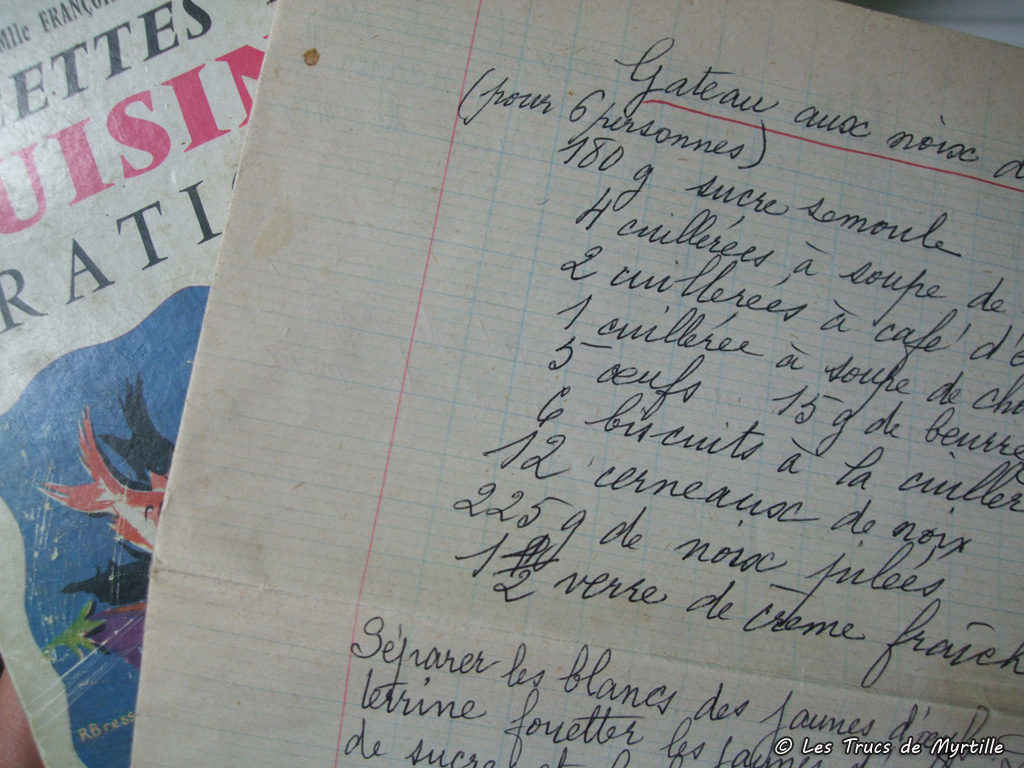 Mlle FRANÇOI
ETTES
UISIN
RATI
RBress
Gateau aux noix d
(pour 6 personnes)
180 g sucre semoule
4 cuillérées à soupe de
2 cuillérées à café d'é
1 cuillérée à soupe de cho
5 œufs 15 g de beurre
6 biscuits à la cuiller
12 cerneaux de noix
225 g de noix pilées
1/2 verre de crème fraîch
Séparer les blancs des jaunes d'œufs.
terrine fouetter les jaunes d'
de sucre et
© Les Trucs de Myrtille